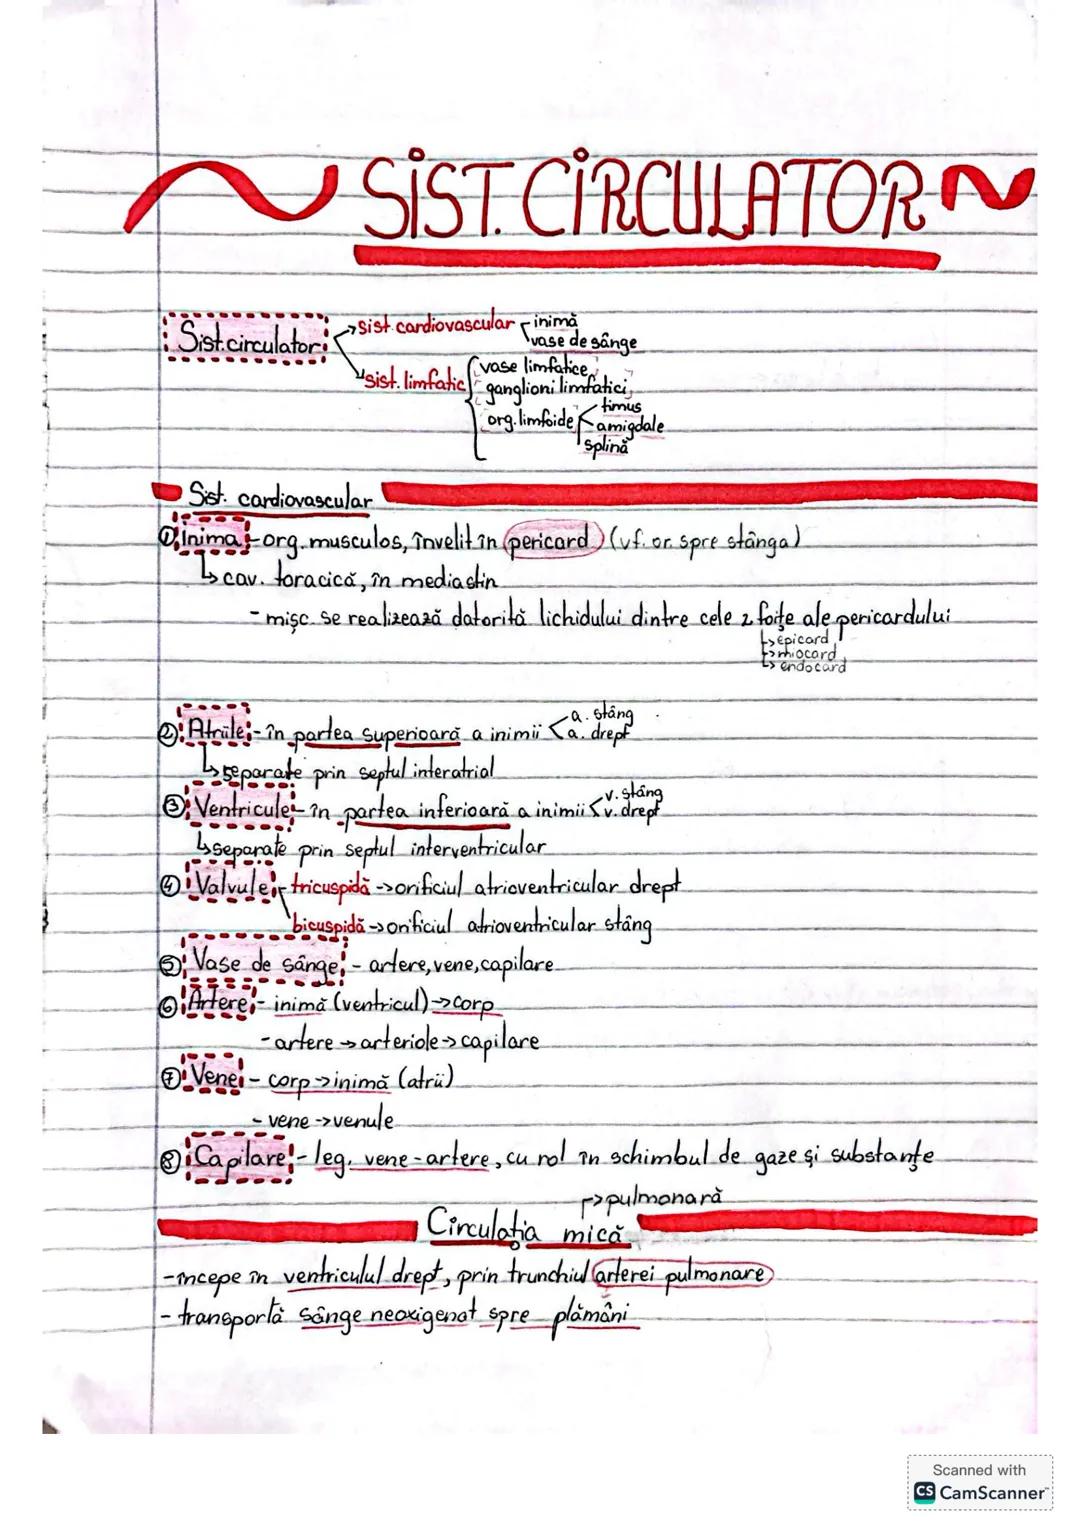 SIST. CIRCULATOR
Sist. circulator: → sist. cardiovascular inimă
vase de sânge
sist. limfatic vase limfatice,
ganglioni limfatici,
org. limfoide timus
amigdale
splină
Sist. cardiovascular
① Inima - org. musculos, învelit în pericard (vf. or. spre stânga)
↳ cav. toracică, în mediastin
- mișc. se realizează datorită lichidului dintre cele 2 foițe ale pericardului
↳ epicard
↳ miocard
↳ endocard
② Atriile - în partea superioară a inimii a. stâng
a. drept
↳ separate prin septul interatrial
③ Ventricule - în partea inferioară a inimii v. stâng
v. drept
↳ separate prin septul interventricular
④ Valvule - tricuspidă -> orificiul atrioventricular drept
bicuspidă -> orificiul atrioventricular stâng
⑤ Vase de sânge - artere, vene, capilare
⑥ Artere - inimă (ventricul) -> corp
- artere -> arteriole -> capilare
⑦ Vene - corp -> inimă (atrii)
- vene -> venule
⑧ Capilare - leg. vene - artere, cu rol în schimbul de gaze și substanțe
-> pulmonară
Circulația mică
- începe în ventriculul drept, prin trunchiul arterei pulmonare
- transportă sânge neoxigenat spre plămâni
Scanned with
CS CamScanner